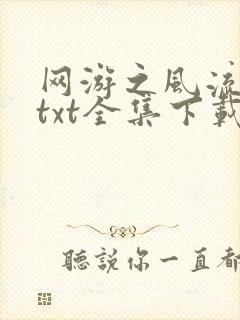 网游之风流
txt全集下載
聽說你一直都